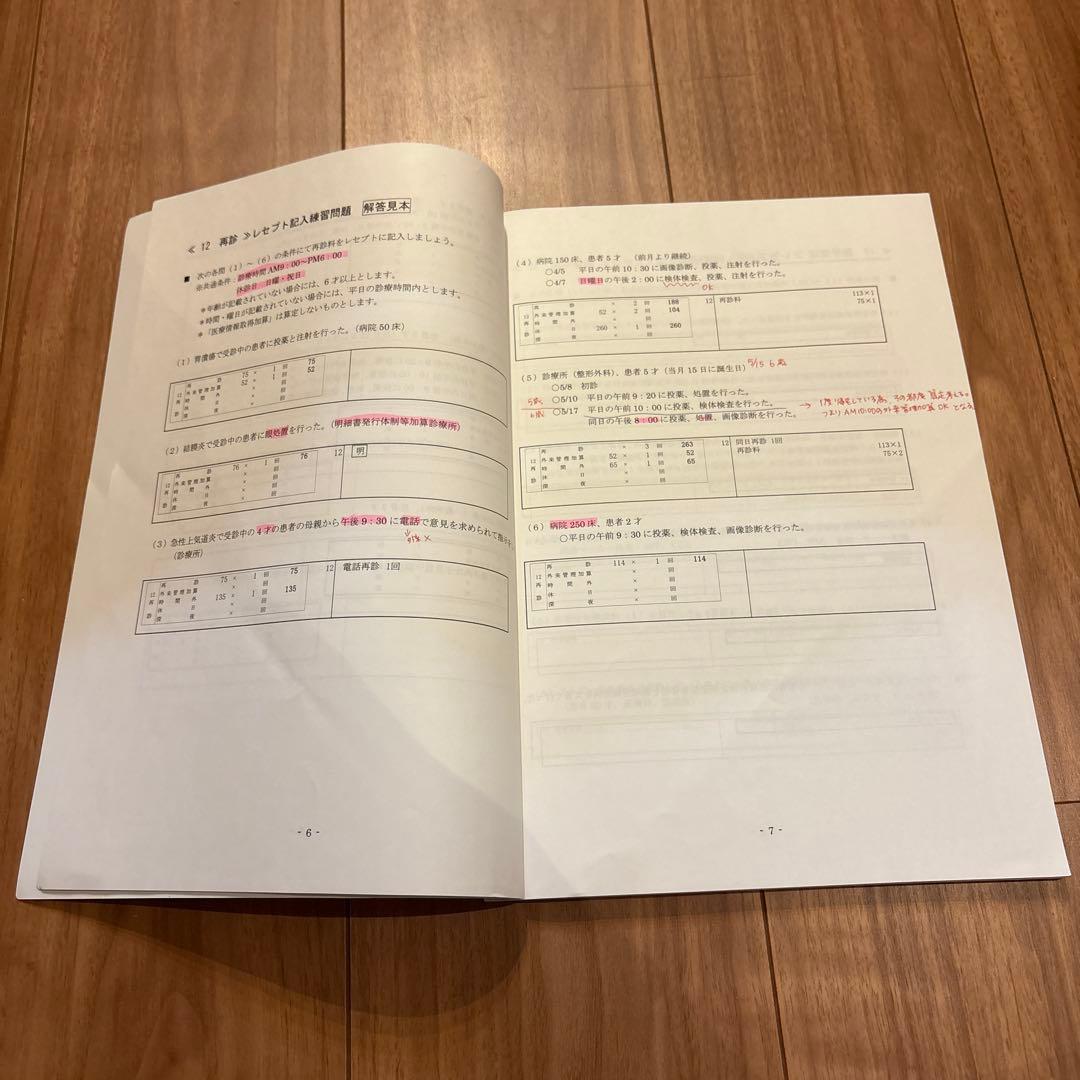 ≪ 12 再診 ≫レセプト記入練習問題 解答見本
■ 次の各問（1）～（6）の条件にて再診料をレセプトに記入しましょう。
※共通条件：診療時間 AM9：00～PM6：00
休診日 日曜・祝日
＊年齢が記載されていない場合には、6才以上とします。
＊時間・曜日が記載されていない場合には、平日の診療時間内とします。
＊『医療情報取得加算』は算定しないものとします。
（1）胃潰瘍で受診中の患者に投薬と注射を行った。（病院50床）
再 診 75 × 1 回 75
12 外来管理加算 52 × 1 回 52
再 時 間 外 × 回
休 日 × 回
診 深 夜 × 回
（2）結膜炎で受診中の患者に眼処置を行った。（明細書発行体制等加算診療所）
再 診 76 × 1 回 76 12 明
12 外来管理加算 × 回
再 時 間 外 × 回
休 日 × 回
診 深 夜 × 回
（3）急性上気道炎で受診中の4才の患者の母親から午後9：30に電話で意見を求められて指示
（診療所）
外管×
再 診 75 × 1 回 75 12 電話再診 1回
12 外来管理加算 × 回
再 時 間 外 135 × 1 回 135
休 日 × 回
診 深 夜 × 回
- 6 -
（4）病院150床、患者5才 （前月より継続）
○4/5 平日の午前10：30に画像診断、投薬、注射を行った。
○4/7 日曜日の午後2：00に検体検査、投薬、注射を行った。
OK
再 診 × 2 回 188 12 再診料 113×1
12 外来管理加算 52 × 2 回 104 75×1
再 時 間 外 × 回
休 日 260 × 1 回 260
診 深 夜 × 回
（5）診療所（整形外科）、患者5才（当月15日に誕生日） 5/15 6歳
○5/8 初診
5歳 ○5/10 平日の午前9：20に投薬、処置を行った。
6歳 ○5/17 平日の午前10：00に投薬、検体検査を行った。
同日の午後8：00に投薬、処置、画像診断を行った。
→ 1度帰宅している為、その都度算定考える。
つまりAM10:00の外来管理加算OKとなる
再 診 × 3 回 263 12 同日再診 1回
12 外来管理加算 52 × 1 回 52 再診料 113×1
再 時 間 外 65 × 1 回 65 75×2
休 日 × 回
診 深 夜 × 回
（6）病院250床、患者2才
○平日の午前9：30に投薬、検体検査、画像診断を行った。
再 診 114 × 1 回 114
12 外来管理加算 × 回
再 時 間 外 × 回
休 日 × 回
診 深 夜 × 回
- 7 -